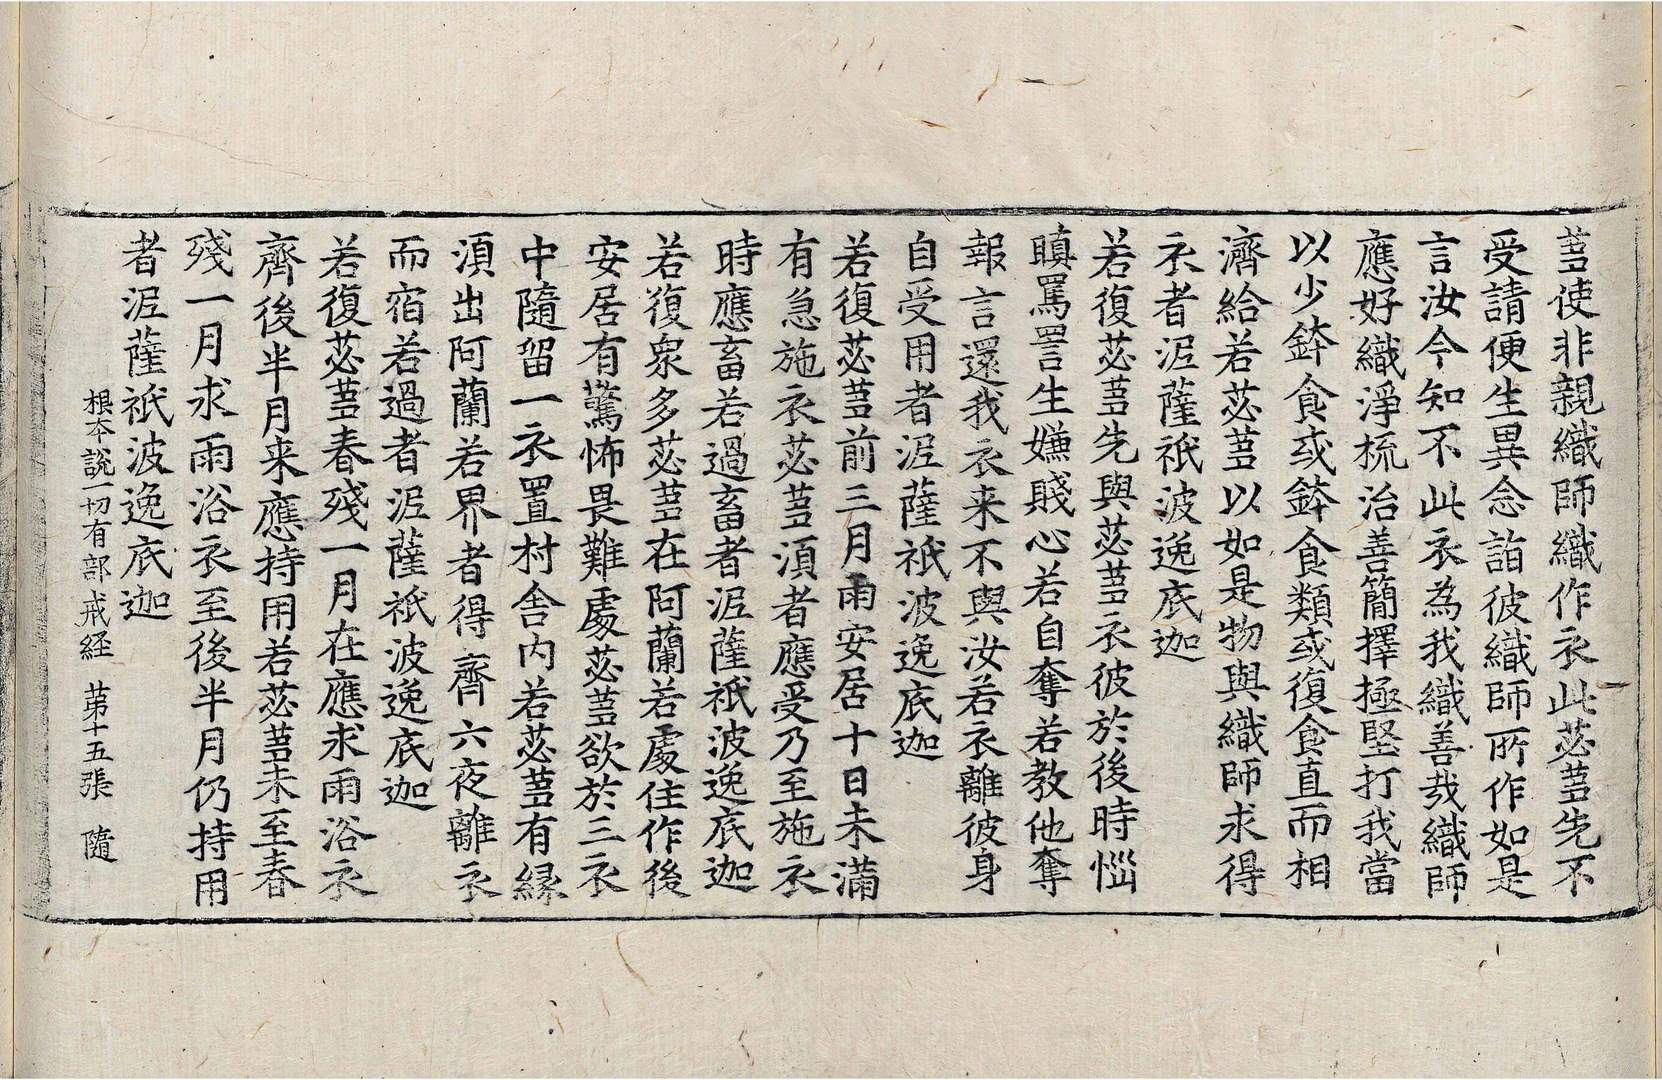 蒭使非親織師織作衣此苾蒭先不
受請便生異念詣彼織師所作如是
言汝今知不此衣為我織善㢤織師
應好織淨梳治善簡擇極堅打我當
以少鉢食或鉢食類或復食直而相
濟給若苾蒭以如是物與織師求得
衣者泥薩祇波逸底迦
若復苾蒭先與苾蒭衣彼於後時惱
瞋罵詈生嫌賤心若自奪若教他奪
報言還我衣来不與汝若衣離彼身
自受用者泥薩祇波逸底迦
若復苾蒭前三月雨安居十日未滿
有急施衣苾蒭湏者應受乃至施衣
時應畜若過畜者泥薩祇波逸底迦
若復衆多苾蒭在阿蘭若處住作後
安居有驚怖畏難處苾蒭欲於三衣
中隨留一衣置村舍内若苾蒭有縁
湏出阿蘭若界者得齊六夜離衣
而宿若過者泥薩祇波逸底迦
若復苾蒭春殘一月在應求雨浴衣
齊後半月来應持用若苾蒭未至春
殘一月求雨浴衣至後半月仍持用
者泥薩祇波逸底迦
根本說一切有部戒経 苐十五張 隨